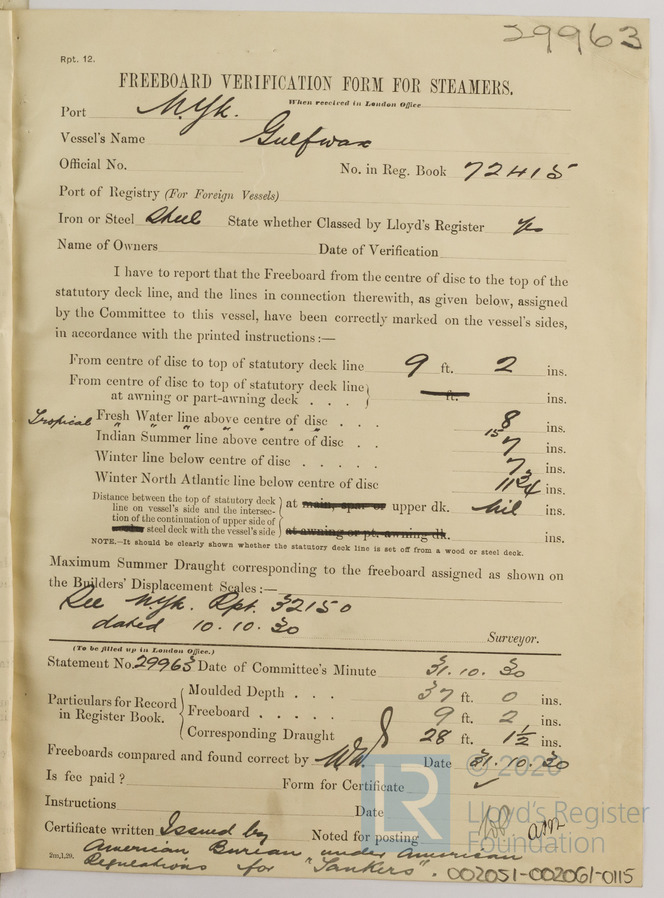 29963
Rpt. 12.
FREEBOARD VERIFICATION FORM FOR STEAMERS.
When received in London Office
Port N.Yk.
Vessel's Name Gulfwax
Official No. No. in Reg. Book 72415
Port of Registry (For Foreign Vessels)
Iron or Steel Steel State whether Classed by Lloyd's Register Yes
Name of Owners Date of Verification
I have to report that the Freeboard from the centre of disc to the top of the
statutory deck line, and the lines in connection therewith, as given below, assigned
by the Committee to this vessel, have been correctly marked on the vessel's sides,
in accordance with the printed instructions:—
From centre of disc to top of statutory deck line 9 ft. 2 ins.
From centre of disc to top of statutory deck line
at awning or part-awning deck . . . ft. ins.
Tropical Fresh Water line above centre of disc . . . 8 ins.
" " " " " 15
Indian Summer line above centre of disc . . 7 ins.
Winter line below centre of disc . . . . . 7 ins.
Winter North Atlantic line below centre of disc 11 3/4 ins.
Distance between the top of statutory deck
line on vessel's side and the intersec-
tion of the continuation of upper side of
steel deck with the vessel's side
at main, spar or upper dk. Nil ins.
at awning or pt. awning dk. ins.
NOTE.—It should be clearly shown whether the statutory deck line is set off from a wood or steel deck.
Maximum Summer Draught corresponding to the freeboard assigned as shown on
the Builders' Displacement Scales:—
See N.Yk. Rpt. 32150
dated 10.10.30
Surveyor.
(To be filled up in London Office.)
Statement No. 29963 Date of Committee's Minute 31.10.30
Particulars for Record
in Register Book.
Moulded Depth . . . 37 ft. 0 ins.
Freeboard . . . . . 9 ft. 2 ins.
Corresponding Draught 28 ft. 1½ ins.
Freeboards compared and found correct by Date 31.10.30
Is fee paid? Form for Certificate ✓
Instructions Date
Certificate written Issued by Noted for posting
American Bureau under American
Regulations for "Tankers".
2m,1,29.
002051-002061-0115
© 2020
LR
Lloyd's Register
Foundation